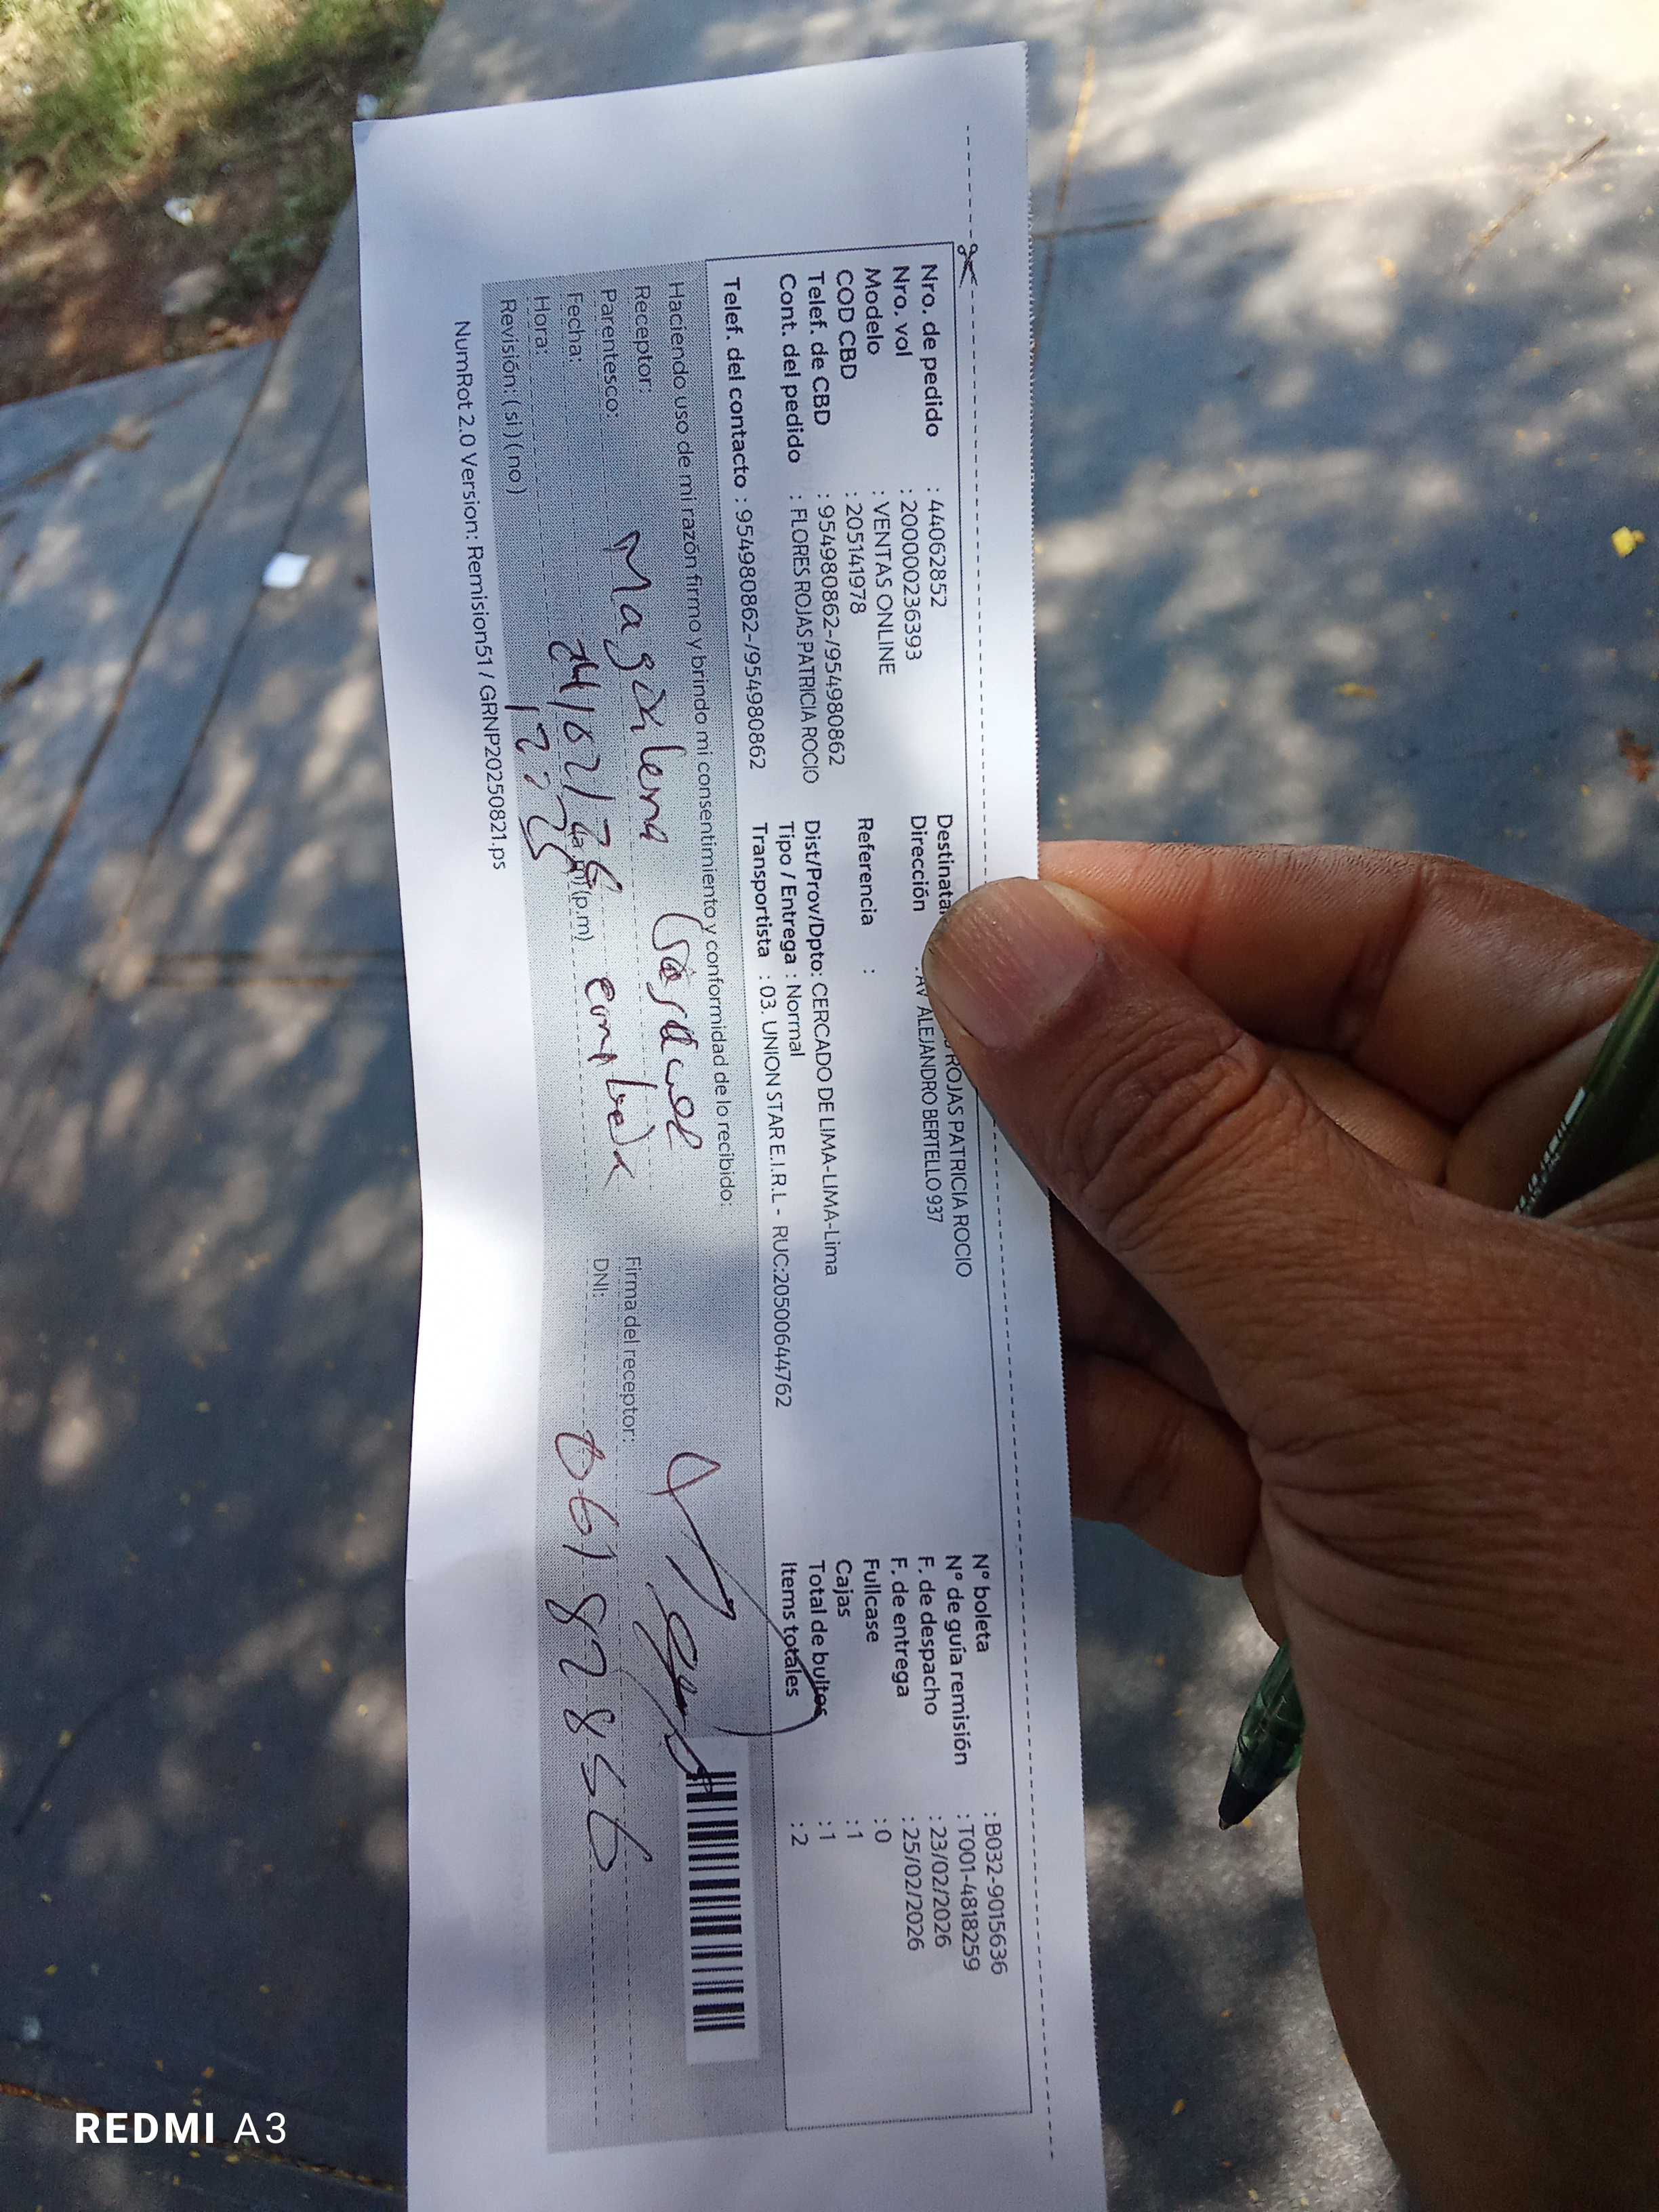 Nro. de pedido : 44062852
Nro. vol : 20000023639​3
Modelo : VENTAS ONLINE
COD CBD : 205141978
Telef. de CBD : 954980862-/954980862
Cont. del pedido : FLORES ROJAS PATRICIA ROCIO
Telef. del contacto : 954980862-/954980862
Destinata ROJAS PATRICIA ROCIO
Dirección : AV ALEJANDRO BERTELLO 937
Referencia :
Dist/Prov/Dpto: CERCADO DE LIMA-LIMA-Lima
Tipo / Entrega : Normal
Transportista : 03. UNION STAR E.I.R.L - RUC:20500644762
N° boleta : B032-9015636
N° de guía remisión : T001-4818259
F. de despacho : 23/02/2026
F. de entrega : 25/02/2026
Fullcase : 0
Cajas : 1
Total de bultos : 1
Items totales : 2
Haciendo uso de mi razón firmo y brindo mi consentimiento y conformidad de lo recibido:
Receptor: Magdalena
Parentesco:
Fecha: 24/02/26
Hora: (a.m)(p.m)
Revisión: ( si ) ( no )
Firma del receptor:
DNI: 06182856
NumRot 2.0 Version: Remision51 / GRNP20250821.ps
REDMI A3